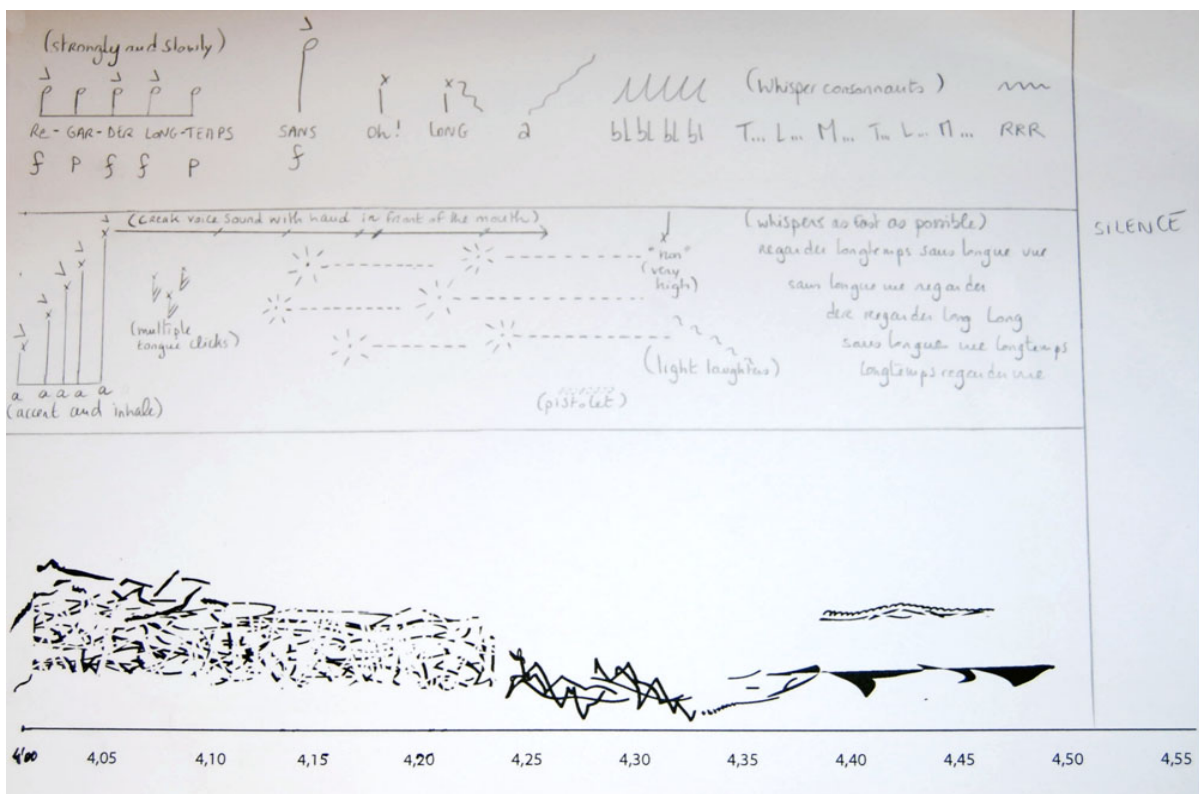 (strongly and slowly)
RE-GAR-DER LONG-TEMPS SANS oh! LONG a bl bl bl bl T... L... M... T... L... M... RRR
f p f f p f
(Whisper consonnants)
(creak voice sound with hand in front of the mouth)
a a a a a
(accent and inhale)
(multiple tongue clicks)
"non"
(very high)
(light laughters)
(pistolet)
(whispers as fast as possible)
regarder longtemps sans longue vue
sans longue vue regarder
dere regarder long Long
sans longue vue longtemps
longtemps regarder vue
SILENCE
4'00 4,05 4,10 4,15 4,20 4,25 4,30 4,35 4,40 4,45 4,50 4,55